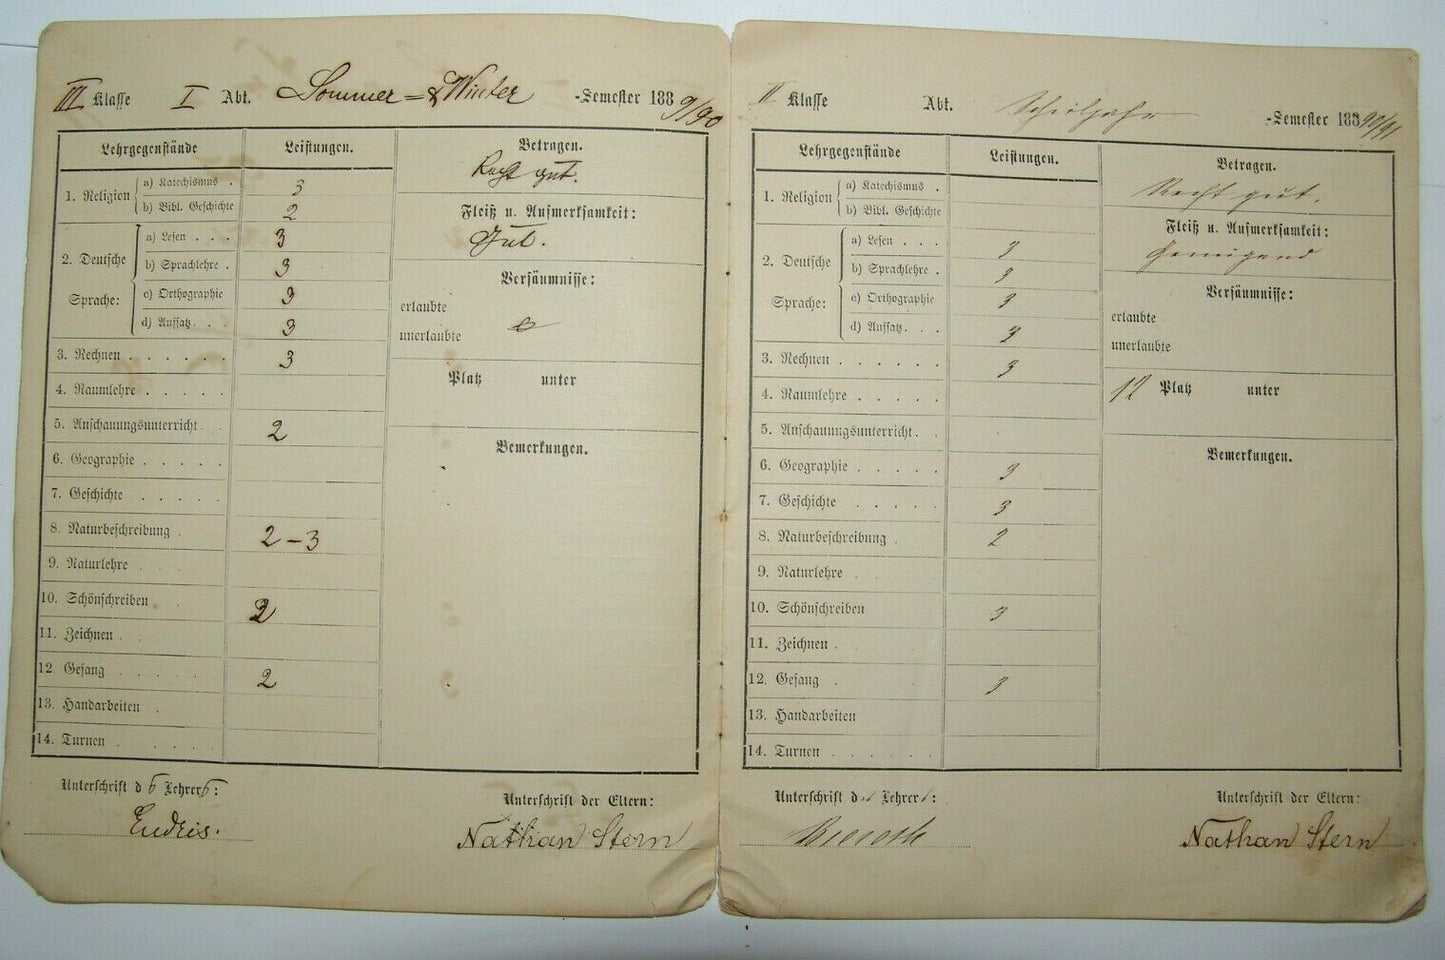 III Klasse I Abt. Sommer = & Winter -Semester 1889/90
Lehrgegenstände Leistungen. Betragen.
Recht gut.
1. Religion a) Katechismus . 3
b) Bibl. Geschichte 2
Fleiß u. Aufmerksamkeit:
Gut.
2. Deutsche Sprache: a) Lesen . . . 3
b) Sprachlehre . 3
c) Orthographie 3
d) Aufsatz . . . 3
Versäumnisse:
erlaubte
unerlaubte
3. Rechnen . . . . . . 3
Platz unter
4. Raumlehre . . . . .
5. Anschauungsunterricht . . 2
Bemerkungen.
6. Geographie . . . . .
7. Geschichte . . . . .
8. Naturbeschreibung . 2-3
9. Naturlehre . . .
10. Schönschreiben . 2
11. Zeichnen .
12 Gesang . . . . . 2
13. Handarbeiten .
14. Turnen . . . . .
Unterschrift des Lehrers:
Unterschrift der Eltern:
Endris.
Nathan Stern
II Klasse Abt. Schuljahr -Semester 18890/91
Lehrgegenstände Leistungen. Betragen.
Recht gut.
1. Religion a) Katechismus .
b) Bibl. Geschichte
Fleiß u. Aufmerksamkeit:
Genügend
2. Deutsche Sprache: a) Lesen . . . 3
b) Sprachlehre . 3
c) Orthographie 3
d) Aufsatz . . . 3
Versäumnisse:
erlaubte
unerlaubte
3. Rechnen . . . . . 3
12 Platz unter
4. Raumlehre . . . . .
5. Anschauungsunterricht . .
Bemerkungen.
6. Geographie . . . . . 3
7. Geschichte . . . . . 3
8. Naturbeschreibung . 2
9. Naturlehre . .
10. Schönschreiben 3
11. Zeichnen .
12. Gesang . 3
13. Handarbeiten
14. Turnen . . . . . .
Unterschrift des Lehrers:
Unterschrift der Eltern:
Nathan Stern